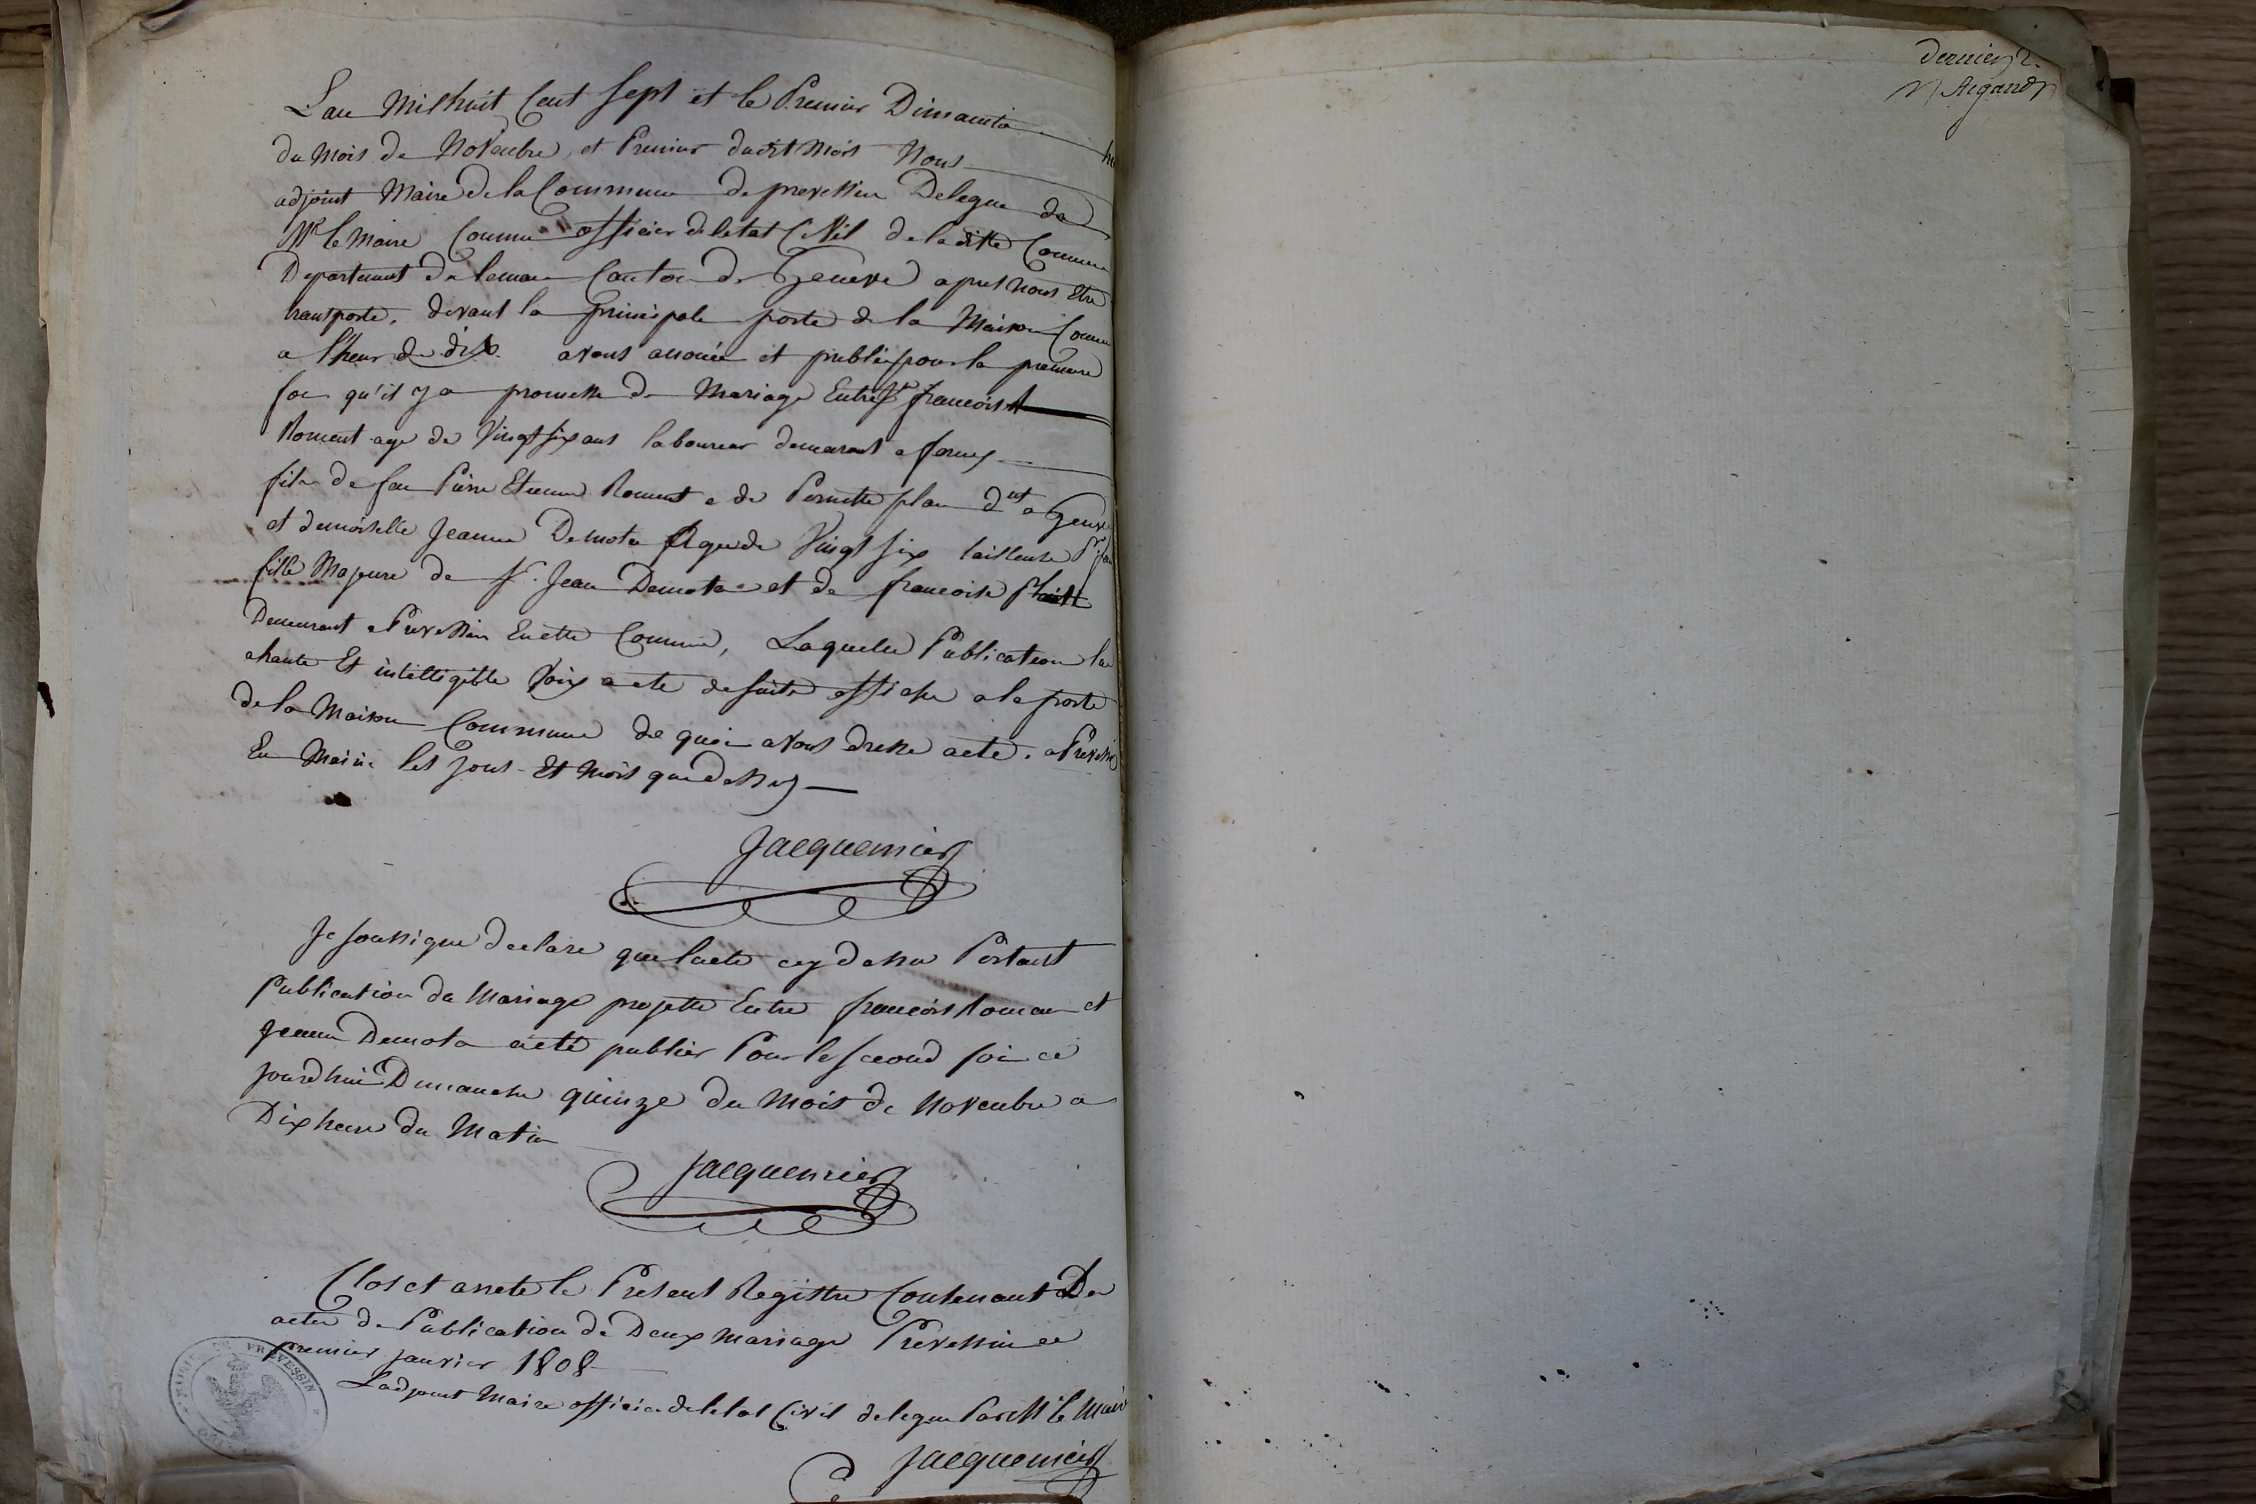 L'an Mil huit Cent Sept et le Premier Dimanche
du Mois de Novembre, et Premier dudit Mois Nous
adjoint Maire de la Commune de prevessin Delegue de
Mr le Maire Comme officier de letat Civil de la ditte Commune
Departement du leman Canton de Geneve apres Nous Etre
transporte, devant la principale porte de la Maison Commu
a l'heur de dix avons anoncée et publié pour la premiere
foi qu'il y a promesse de Mariage Entre Sr francois
Roment age de Vingt six ans laboureur demeurant a
fils de feu Pierre Etienne Roment e de Pernette plan dnt a Genev
et demoiselle Jeanne Demota Agee de Vingt six tailleuse
fille Majeure de Sr. Jean Demota et de francoise
Demeurant a Prevessin En cette Commune, Laquelle Publication lu
a haute Et intelligible Voix a ete de suite affiche a la porte
de la Maison Commune de quoi avons dresse acte. a Prevessin
En Mairie les Jour Et Mois que dessus
Jacquemier
Je soussigne declare que lacte cy dessu Portant
Publication de Mariage projette Entre francois Roman et
Jeanne Demota a ete publier Pour le second foi ce
jourdhui Dimanche quinze du Mois de Novembre a
Dix heure du Matin
Jacquemier
Clos et arrete le Present Registre Contenant De
acte de Publication de Deux mariage Prevessin ce
premier janvier 1808
Ladjoint Maire officier de letat Civil delegue Par Mr le Maire
Jacquemier
PREVESSIN
dernier 2.
Argand